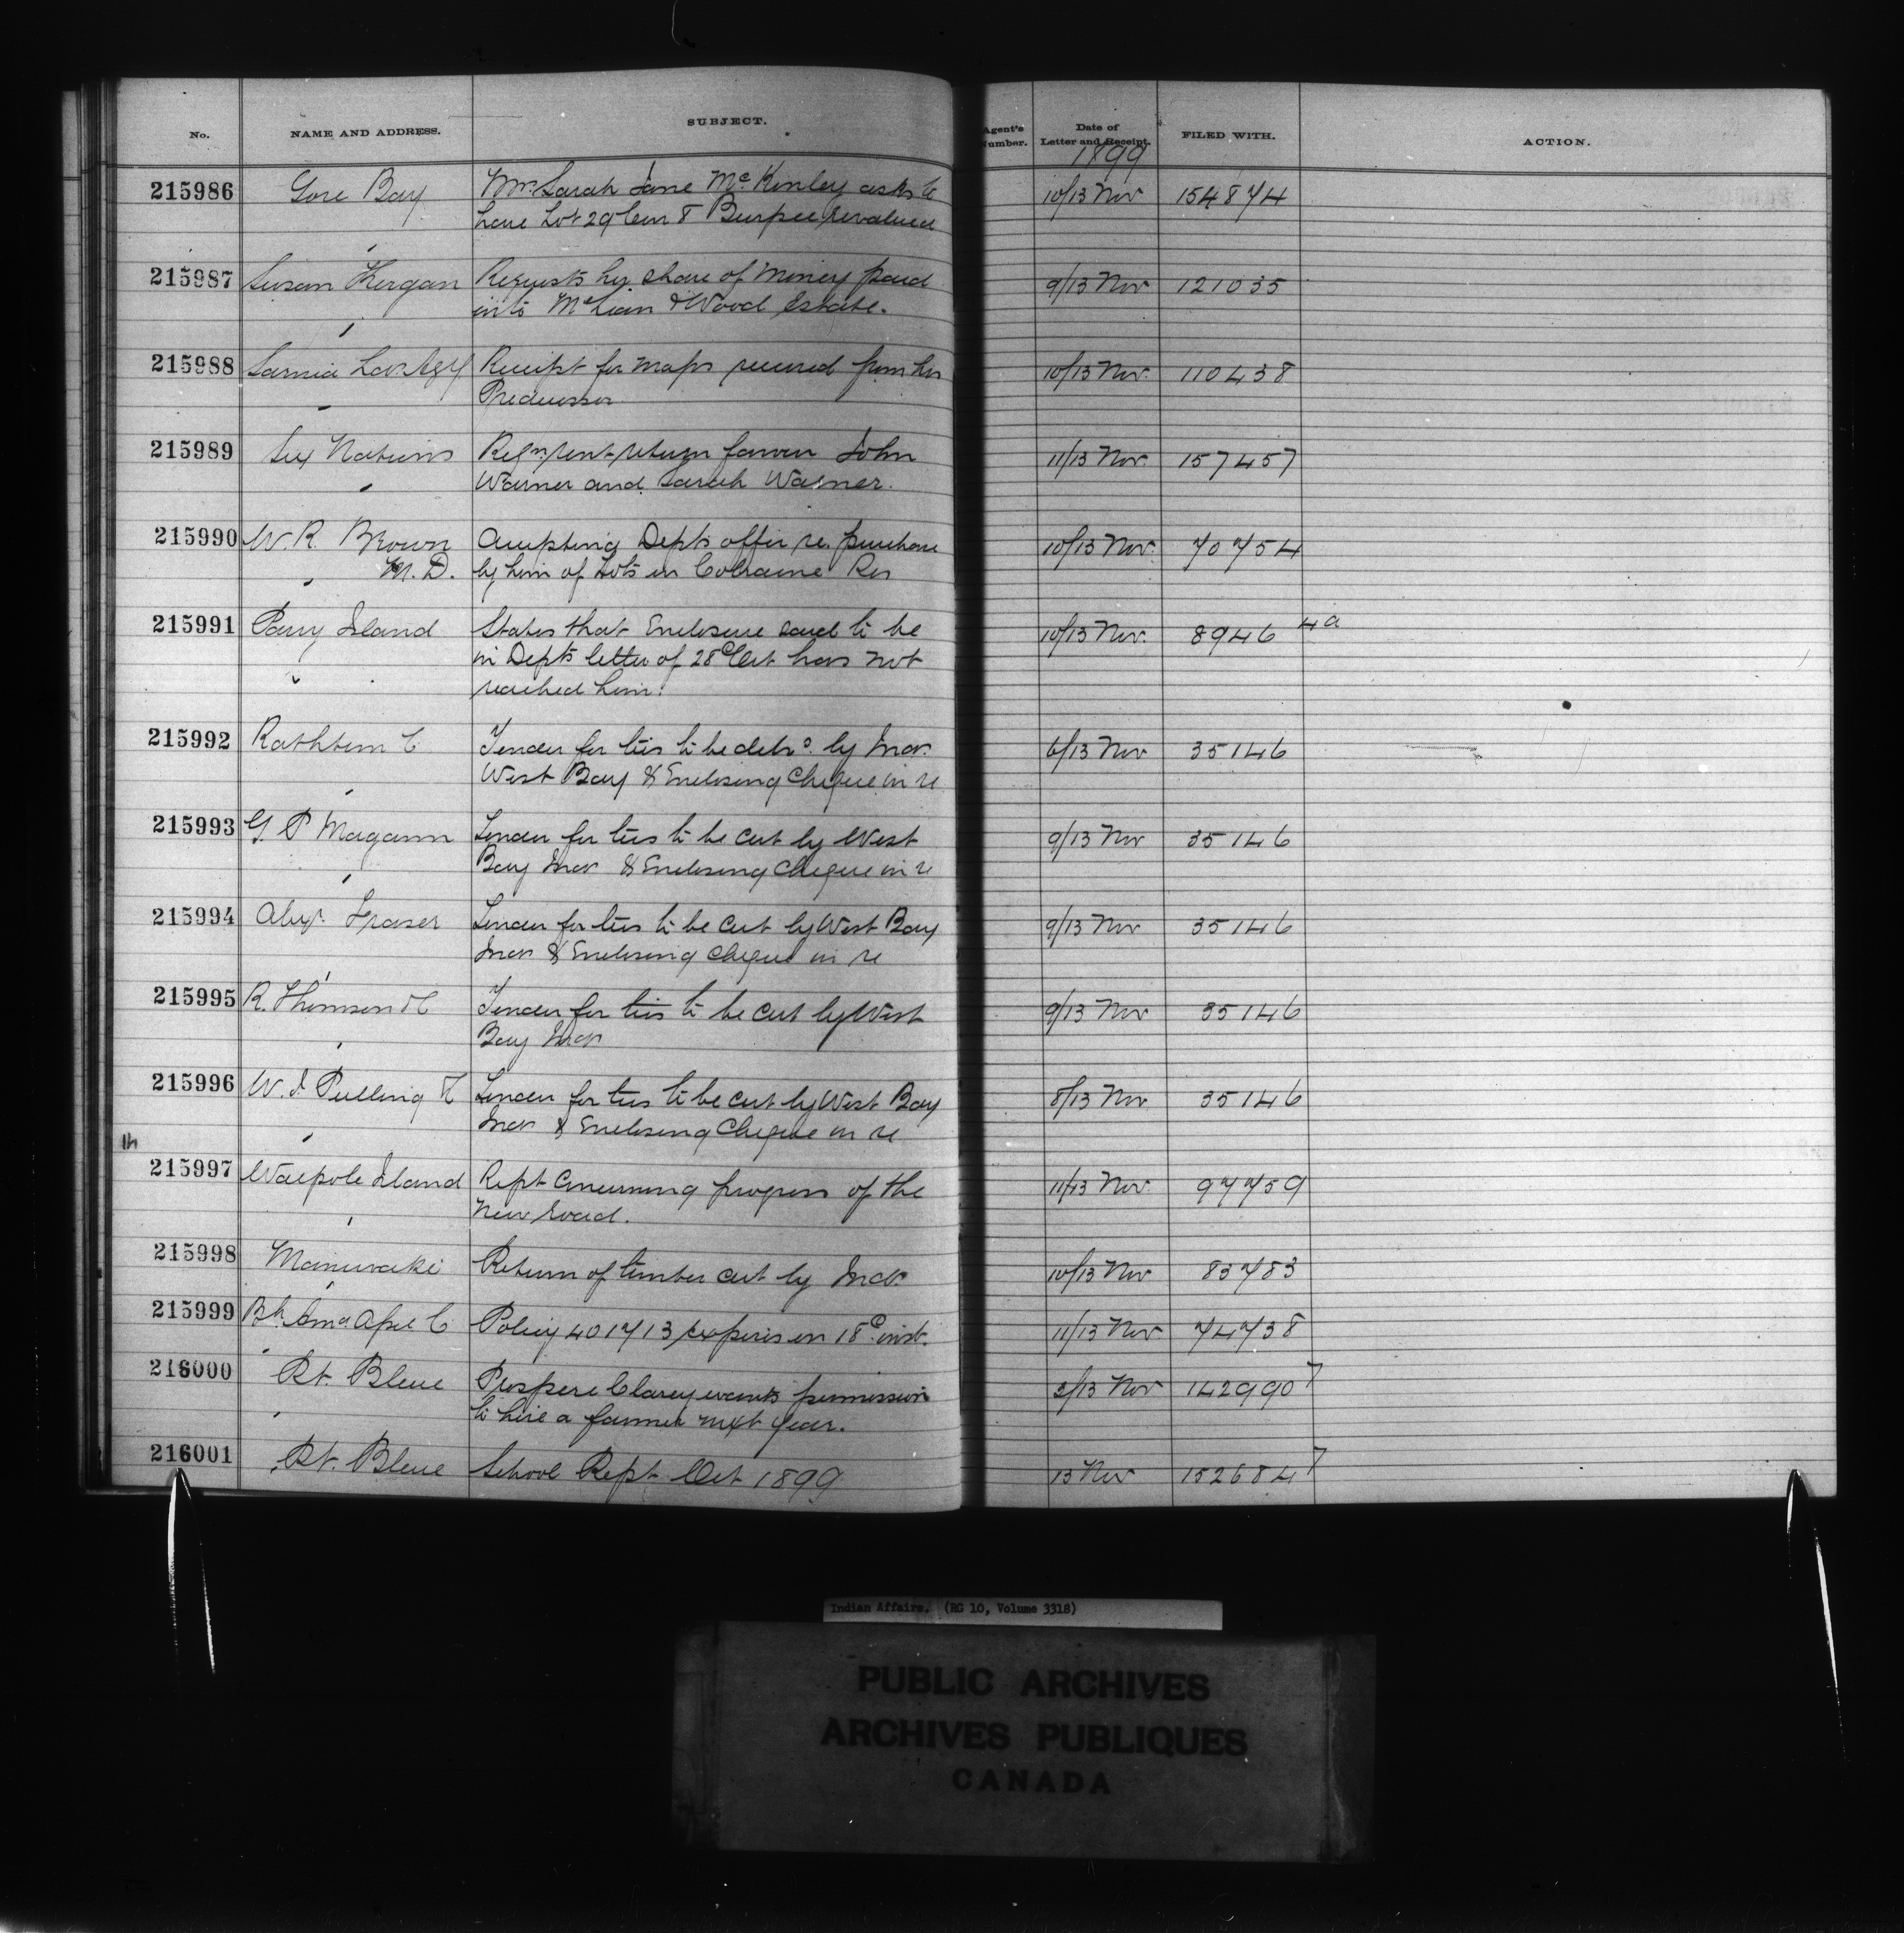 No. NAME AND ADDRESS. SUBJECT. Agent's Number. Date of Letter and Receipt. FILED WITH. ACTION.
1899
215986 Gore Bay Mrs. Sarah Jane McKinley asks to 10/13 Nov 154874
have Lot 29 Con 8 Burpee revalued
215987 Susan Requests her share of money paid 9/13 Nov 121035
into McLean & Wood Estate.
215988 Sarnia Receipt for maps received from his 10/13 Nov. 110438
Predecessor
215989 Six Nations Rent return John 11/13 Nov. 157457
Warner and Sarah Warner.
215990 W. R. Brown Accepting Depts offer re. purchase 10/13 Nov. 70754
M. D. by him of lots in Colraine Res
215991 Parry Island States that Enclosure said to be 10/13 Nov. 8946 4a
in Depts letter of 28 Oct has not
reached him.
215992 Rathbun C Tender for ties to be by Inds. 6/13 Nov 35146
West Bay & Enclosing Cheque in re
215993 G. P Magann Tender for ties to be cut by West 9/13 Nov 35146
Bay Inds & Enclosing Cheque in re
215994 Alexr. Fraser Tender for ties to be cut by West Bay 9/13 Nov 35146
Inds & Enclosing Cheque in re
215995 R. Thomson & C Tender for ties to be cut by West 9/13 Nov 35146
Bay Inds
215996 W. J. Pulling & Tender for ties to be cut by West Bay 8/13 Nov 35146
Inds & Enclosing Cheque in re
215997 Walpole Island Rept Concerning progress of the 11/13 Nov. 97759
new road.
215998 Maniwaki Return of timber cut by Inds. 10/13 Nov 83783
215999 Policy 401713 expires on 18 inst. 11/13 Nov 74738
216000 Pt. Bleue Prospere Clarey wants permission 2/13 Nov 142990 7
to hire a farmer next year.
216001 Pt. Bleue School Rept Oct 1899 13 Nov 152684 7
Indian Affairs. (RG 10, Volume 3318)
PUBLIC ARCHIVES
ARCHIVES PUBLIQUES
CANADA